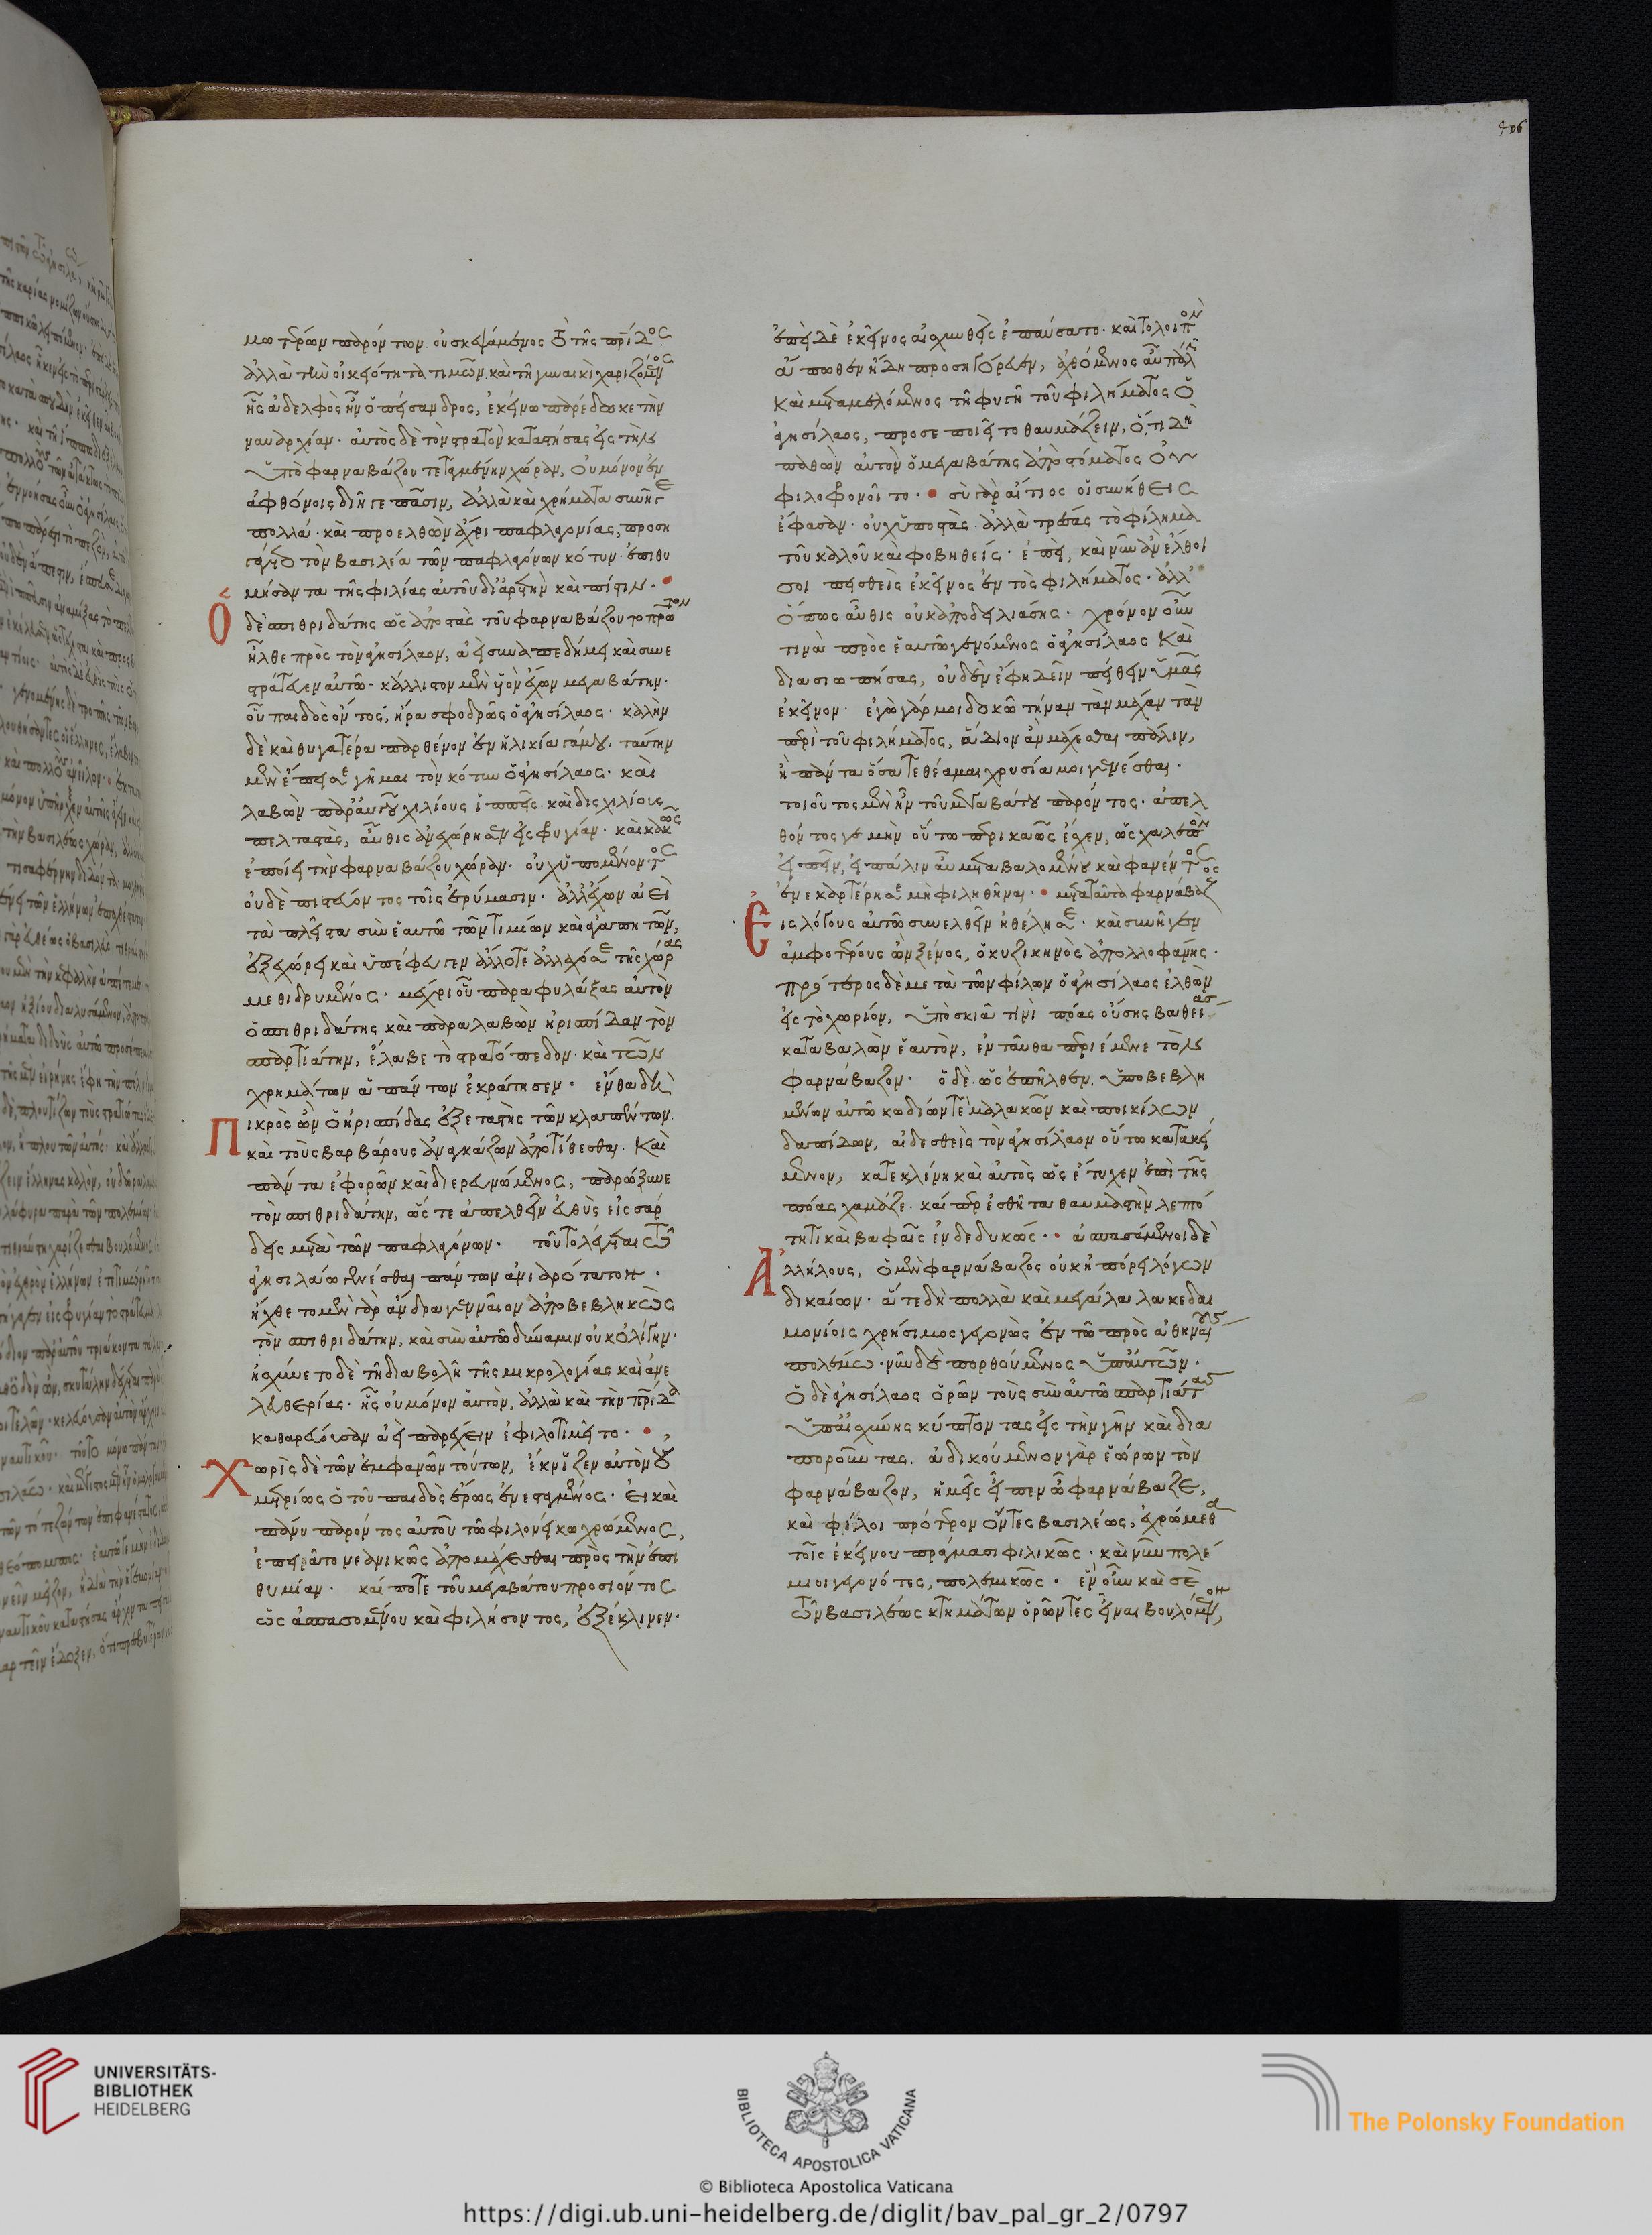 406
μωτέρων παρόντων. οὐ σκεψάμενος τὸ τῆς πατρίδος
ἀλλὰ τὴν οἰκειότητα τιμῶν. καὶ τῇ γυναικὶ χαριζόμενος
ἧς ἀδελφὸς ἦν ὁ πείσανδρος, ἐκείνω παρέδωκε τὴν
ναυαρχίαν. αὐτὸς δὲ τὸν στρατὸν καταστήσας εἰς τὴν
ὑπὸ φαρναβάζου τεταγμένην χώραν, οὐ μόνον ἐν
ἀφθόνοις διῆγε πᾶσιν, ἀλλὰ καὶ χρήματα συνῆγε
πολλά. καὶ προελθὼν ἄχρι παφλαγονίας, προση
γάγετο τὸν βασιλέα τῶν παφλαγόνων κότυν. ἐπιθυ
μήσαντα τῆς φιλίας αὐτοῦ δι' ἀρετὴν καὶ πίστιν.
Ὁ δὲ σπιθριδάτης ὡς ἀποστὰς τοῦ φαρναβάζου τὸ πρῶτον
ἦλθε πρὸς τὸν ἀγησίλαον, ἀεὶ συναπεδήμει καὶ συνε
στράτευεν αὐτῶ. κάλλιστον μὲν υἱὸν ἔχων μεγαβάτην.
οὗ παιδὸς ὄντος, ἤρα σφοδρῶς ὁ ἀγησίλαος. καλὴν
δὲ καὶ θυγατέρα παρθένον ἐν ἡλικία γάμου. ταύτην
μὲν ἔπεισε γῆμαι τὸν κότυν ὁ ἀγησίλαος. καὶ
λαβὼν παρ' αὐτοῦ χιλίους ἱππεῖς. καὶ δισχιλίους
πελταστὰς, αὖθις ἀνεχώρησεν εἰς φρυγίαν. καὶ κακῶς
ἐποίει τὴν φαρναβάζου χώραν. οὐχ ὑπομένοντος
οὐδὲ πιστεύοντος τοῖς ἐρύμασιν. ἀλλ' ἔχων ἀεὶ
τὰ πλεῖστα σὺν ἑαυτῶ τῶν τιμίων καὶ ἀγαπητῶν,
ἐξεχώρει καὶ ὑπέφευγεν ἄλλοτε ἀλλαχόσε τῆς χώρας
μεθιδρυμένος. μέχρι οὗ παραφυλάξας αὐτὸν
ὁ σπιθριδάτης καὶ παραλαβὼν ἡριππίδαν τὸν
σπαρτιάτην, ἔλαβε τὸ στρατόπεδον. καὶ τῶν
χρημάτων ἁπάντων ἐκράτησεν. ἔνθα δὴ
Πικρὸς ὢν ὁ ἡριππίδας ἐξεταστὴς τῶν κλαπέντων.
καὶ τοὺς βαρβάρους ἀναγκάζων ἀποτίθεσθαι. καὶ
πάντα ἐφορῶν καὶ διερευνώμενος, παρώξυνε
τὸν σπιθριδάτην, ὥστε ἀπελθεῖν εὐθὺς εἰς σάρ
δεις μετὰ τῶν παφλαγόνων. τοῦτο λέγεται τῶ
ἀγησιλάω γενέσθαι πάντων ἀνιαρότατον.
ἤχθετο μὲν γὰρ ἄνδρα γενναῖον ἀποβεβληκὼς
τὸν σπιθριδάτην, καὶ σὺν αὐτῶ δύναμιν οὐκ ὀλίγην.
ἠσχύνετο δὲ τῇ διαβολῇ τῆς μικρολογίας καὶ ἀνε
λευθερίας. ἧς οὐ μόνον αὑτὸν, ἀλλὰ καὶ τὴν πατρίδα
καθαρεύουσαν ἀεὶ παρέχειν ἐφιλοτιμεῖτο.
Χωρὶς δὲ τῶν ἐμφανῶν τούτων, ἔκνιζεν αὐτὸν οὐ
μετρίως ὁ τοῦ παιδὸς ἔρως ἐνεσταγμένος. εἰ καὶ
πάνυ παρόντος αὐτοῦ τῶ φιλονείκω χρώμενος,
ἐπειρᾶτο νεανικῶς ἀπομάχεσθαι πρὸς τὴν ἐπι
θυμίαν. καί ποτε τοῦ μεγαβάτου προσιόντος
ὡς ἀσπασομένου καὶ φιλήσοντος, ἐξέκλινεν.
ἐπεὶ δὲ ἐκεῖνος αἰσχυνθεὶς ἐπαύσατο. καὶ τολοιπὸν
ἄπωθεν ἤδη προσηγόρευεν, ἀχθόμενος αὖ πάλιν
καὶ μεταμελόμενος τῇ φυγῇ τοῦ φιλήματος ὁ
ἀγησίλαος, προσεποιεῖτο θαυμάζειν, ὅ, τι δὴ
παθὼν αὐτὸν ὁ μεγαβάτης ἀπὸ στόματος οὐ
φιλοφρονοῖτο. σὺ γὰρ αἴτιος οἱ συνήθεις
ἔφασαν. οὐχ ὑποστὰς. ἀλλὰ τρέσας τὸ φίλημα
τοῦ καλοῦ καὶ φοβηθείς. ἐπεὶ, καὶ νῦν ἂν ἔλθοι
σοι πεισθεὶς ἐκεῖνος ἐντὸς φιλήματος. ἀλλ'
ὅπως αὖθις οὐκ ἀποδειλιάσης. χρόνον οὖν
τινὰ πρὸς ἑαυτῶ γενόμενος ὁ ἀγησίλαος καὶ
διασιωπήσας, οὐδὲν ἔφη δεῖν πείθειν ὑμᾶς
ἐκεῖνον. ἐγὼ γάρ μοι δοκῶ τήναν τὰν μάχαν τὰν
περὶ τοῦ φιλήματος, ἅδιον ἂν μάχεσθαι πάλιν,
ἢ πάντα ὅσα τεθέαμαι χρυσία μοι γενέσθαι.
τοιοῦτος μὲν ἦν τοῦ μεγαβάτου παρόντος. ἀπελ
θόντος γε μὴν οὕτω περικαῶς ἔσχεν, ὡς χαλεπὸν
εἰπεῖν, εἰ πάλιν αὖ μεταβαλομένου καὶ φανέντος
ἐνεκαρτέρησε μὴ φιληθῆναι. μετὰ ταῦτα φαρνάβαζος
Εἰς λόγους αὐτῶ συνελθεῖν ἠθέλησε. καὶ συνῆγεν
ἀμφοτέρους ὢν ξένος, ὁ κυζικηνὸς ἀπολλοφάνης.
πρότερος δὲ μετὰ τῶν φίλων ὁ ἀγησίλαος ἐλθὼν
εἰς τὸ χωρίον, ὑπὸ σκιᾶ τινὶ πόας οὔσης βαθείας
καταβαλὼν ἑαυτὸν, ἐνταῦθα περιέμενε τὸν
φαρνάβαζον. ὁ δὲ ὡς ἐπῆλθεν, ὑποβεβλη
μένων αὐτῶ κωδίων τὲ μαλακῶν καὶ ποικίλων
δαπίδων, αἰδεσθεὶς τὸν ἀγησίλαον οὕτω κατακεί
μενον, κατεκλίνη καὶ αὐτὸς ὡς ἔτυχεν ἐπὶ τῆς
πόας χαμᾶζε. καίπερ ἐσθῆτα θαυμαστὴν λεπτό
τητι καὶ βαφαῖς ἐνδεδυκώς. ἀσπασάμενοι δὲ
Ἀλλήλους, ὁ μὲν φαρνάβαζος οὐκ ἠπόρει λόγων
δικαίων. ἅτε δὴ πολλὰ καὶ μεγάλα λακεδαι
μονίοις χρήσιμος γεγονὼς ἐν τῶ πρὸς ἀθηναίους
πολέμω. νῦν δὲ πορθούμενος ὑπ' αὐτῶν.
ὁ δὲ ἀγησίλαος ὁρῶν τοὺς σὺν αὐτῶ σπαρτιάτας
ὑπ' αἰσχύνης κύπτοντας εἰς τὴν γῆν καὶ δια
ποροῦντας. ἀδικούμενον γὰρ ἑώρων τὸν
φαρνάβαζον, ἡμεῖς εἶπεν ὦ φαρνάβαζε,
καὶ φίλοι πρότερον ὄντες βασιλέως, ἐχρώμεθα
τοῖς ἐκείνου πράγμασι φιλικῶς. καὶ νῦν πολέ
μιοι γεγονότες, πολεμικῶς. ἓν οὖν καὶ σὲ
τῶν βασιλέως κτημάτων ὁρῶντες εἶναι βουλόμενον,
UNIVERSITÄTS-
BIBLIOTHEK
HEIDELBERG
BIBLIOTECA APOSTOLICA VATICANA
The Polonsky Foundation
© Biblioteca Apostolica Vaticana
https://digi.ub.uni-heidelberg.de/diglit/bav_pal_gr_2/0797